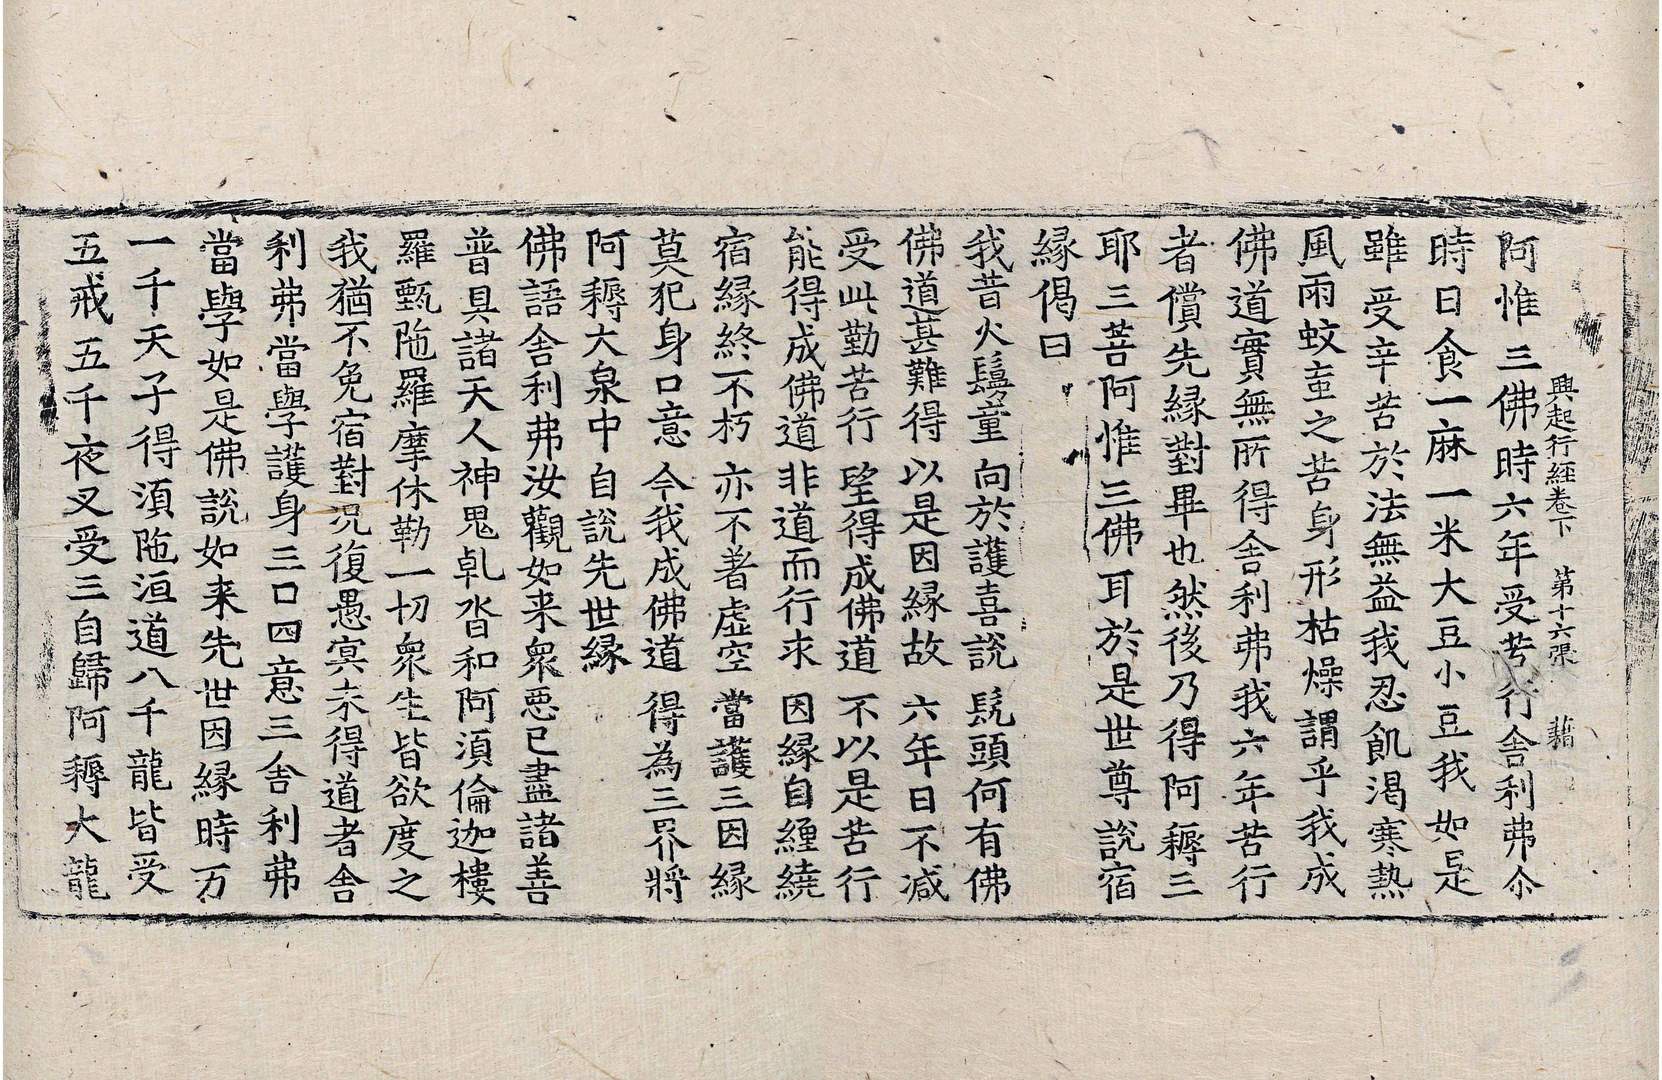 興起行經卷下 第十六張 藉
阿惟三佛時六年受苦行舍利弗尒
時日食一麻一米大豆小豆我如是
雖受辛苦於法無益我忍飢渴寒熱
風雨蚊䖟之苦身形枯燥謂乎我成
佛道實無所得舍利弗我六年苦行
者償先緣對畢也然後乃得阿耨三
耶三菩阿惟三佛耳於是世尊說宿
緣偈曰
我昔火鬘童 向於護喜說 髡頭何有佛
佛道甚難得 以是因緣故 六年日不減
受此勤苦行 望得成佛道 不以是苦行
能得成佛道 非道而行求 因緣自纏繞
宿緣終不朽 亦不著虛空 當護三因緣
莫犯身口意 今我成佛道 得為三界將
阿耨大泉中 自說先世緣
佛語舍利弗汝觀如来衆惡已盡諸善
普具諸天人神鬼乹沓和阿湏倫迦樓
羅甄陁羅摩休勒一切衆生皆欲度之
我猶不免宿對況復愚冥未得道者舍
利弗當學護身三口四意三舍利弗
當學如是佛說如来先世因緣時万
一千天子得湏陁洹道八千龍皆受
五戒五千夜叉受三自歸阿耨大龍